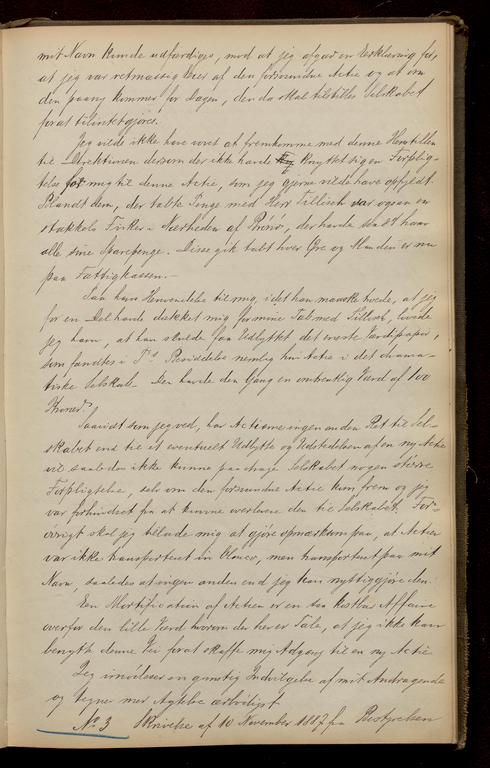 mit Navn kunde udfærdiges, mod at jeg afgav en Erklæring for,
at jeg var retmæssig Eier af den forsvundne Actie og at om
den paany kommer for Dagen, den da skal tilstilles Selskabet
for at tilintetgjøres.
Jeg vilde ikke have vovet at fremkomme med denne Henstillen
til Direktionen dersom der ikke havde knyttet sig en Forplig-
telse for mig til denne Actie, som jeg gjerne vilde have opfyldt.
Blandt dem, der tabte Penge med Herr Tillisch var ogsaa en
stakkels Fisker i Nærheden af, der havde ham
alle sine Sparepenge. Disse gik tabt hver Øre og Manden er nu
paa Fattigkassen.—
Paa hans Henvendelse til mig, idet han maaske troede, at jeg
for en Deel havde dækket mig for mine Tab med Tillisch, lovede
jeg ham, at han skulde faa Udbyttet af det eneste Værdipapir,
som fandtes i T.s Besiddelse nemlig hin Actie i det drama-
tiske Selskab. Den havde den Gang en omtrentlig Værd af 100
Kroner.
Saavidt som jeg ved, har Actierne ingen anden Ret til Sel-
skabet end til et eventuelt Udbytte og Udstedelsen af en ny Actie
vil saaledes ikke kunne paadrage Selskabet nogen større
Forpligtelse, selv om den forsvundne Actie kom frem og jeg
var forhindret fra at kunne overlevere den til Selskabet. For-
øvrigt skal jeg tillade mig at gjøre opmærksom paa, at Actien
var ikke transporteret in blanco, men transporteret paa mit
Navn, saaledes at ingen anden end jeg kan nyttiggjøre den.
En Mortification af Actien er en saa kostbar Affaire
overfor den lille Værd hvorom der her er Tale, at jeg ikke kan
benytte denne Vei for at skaffe mig Adgang til en ny Actie.
Jeg imødeser en gunstig Indvilgelse af mit Andragende
og tegner mer Agtelse ærbødigst
No 3 Skrivelse af 10 November 1887 fra Bestyrelsen